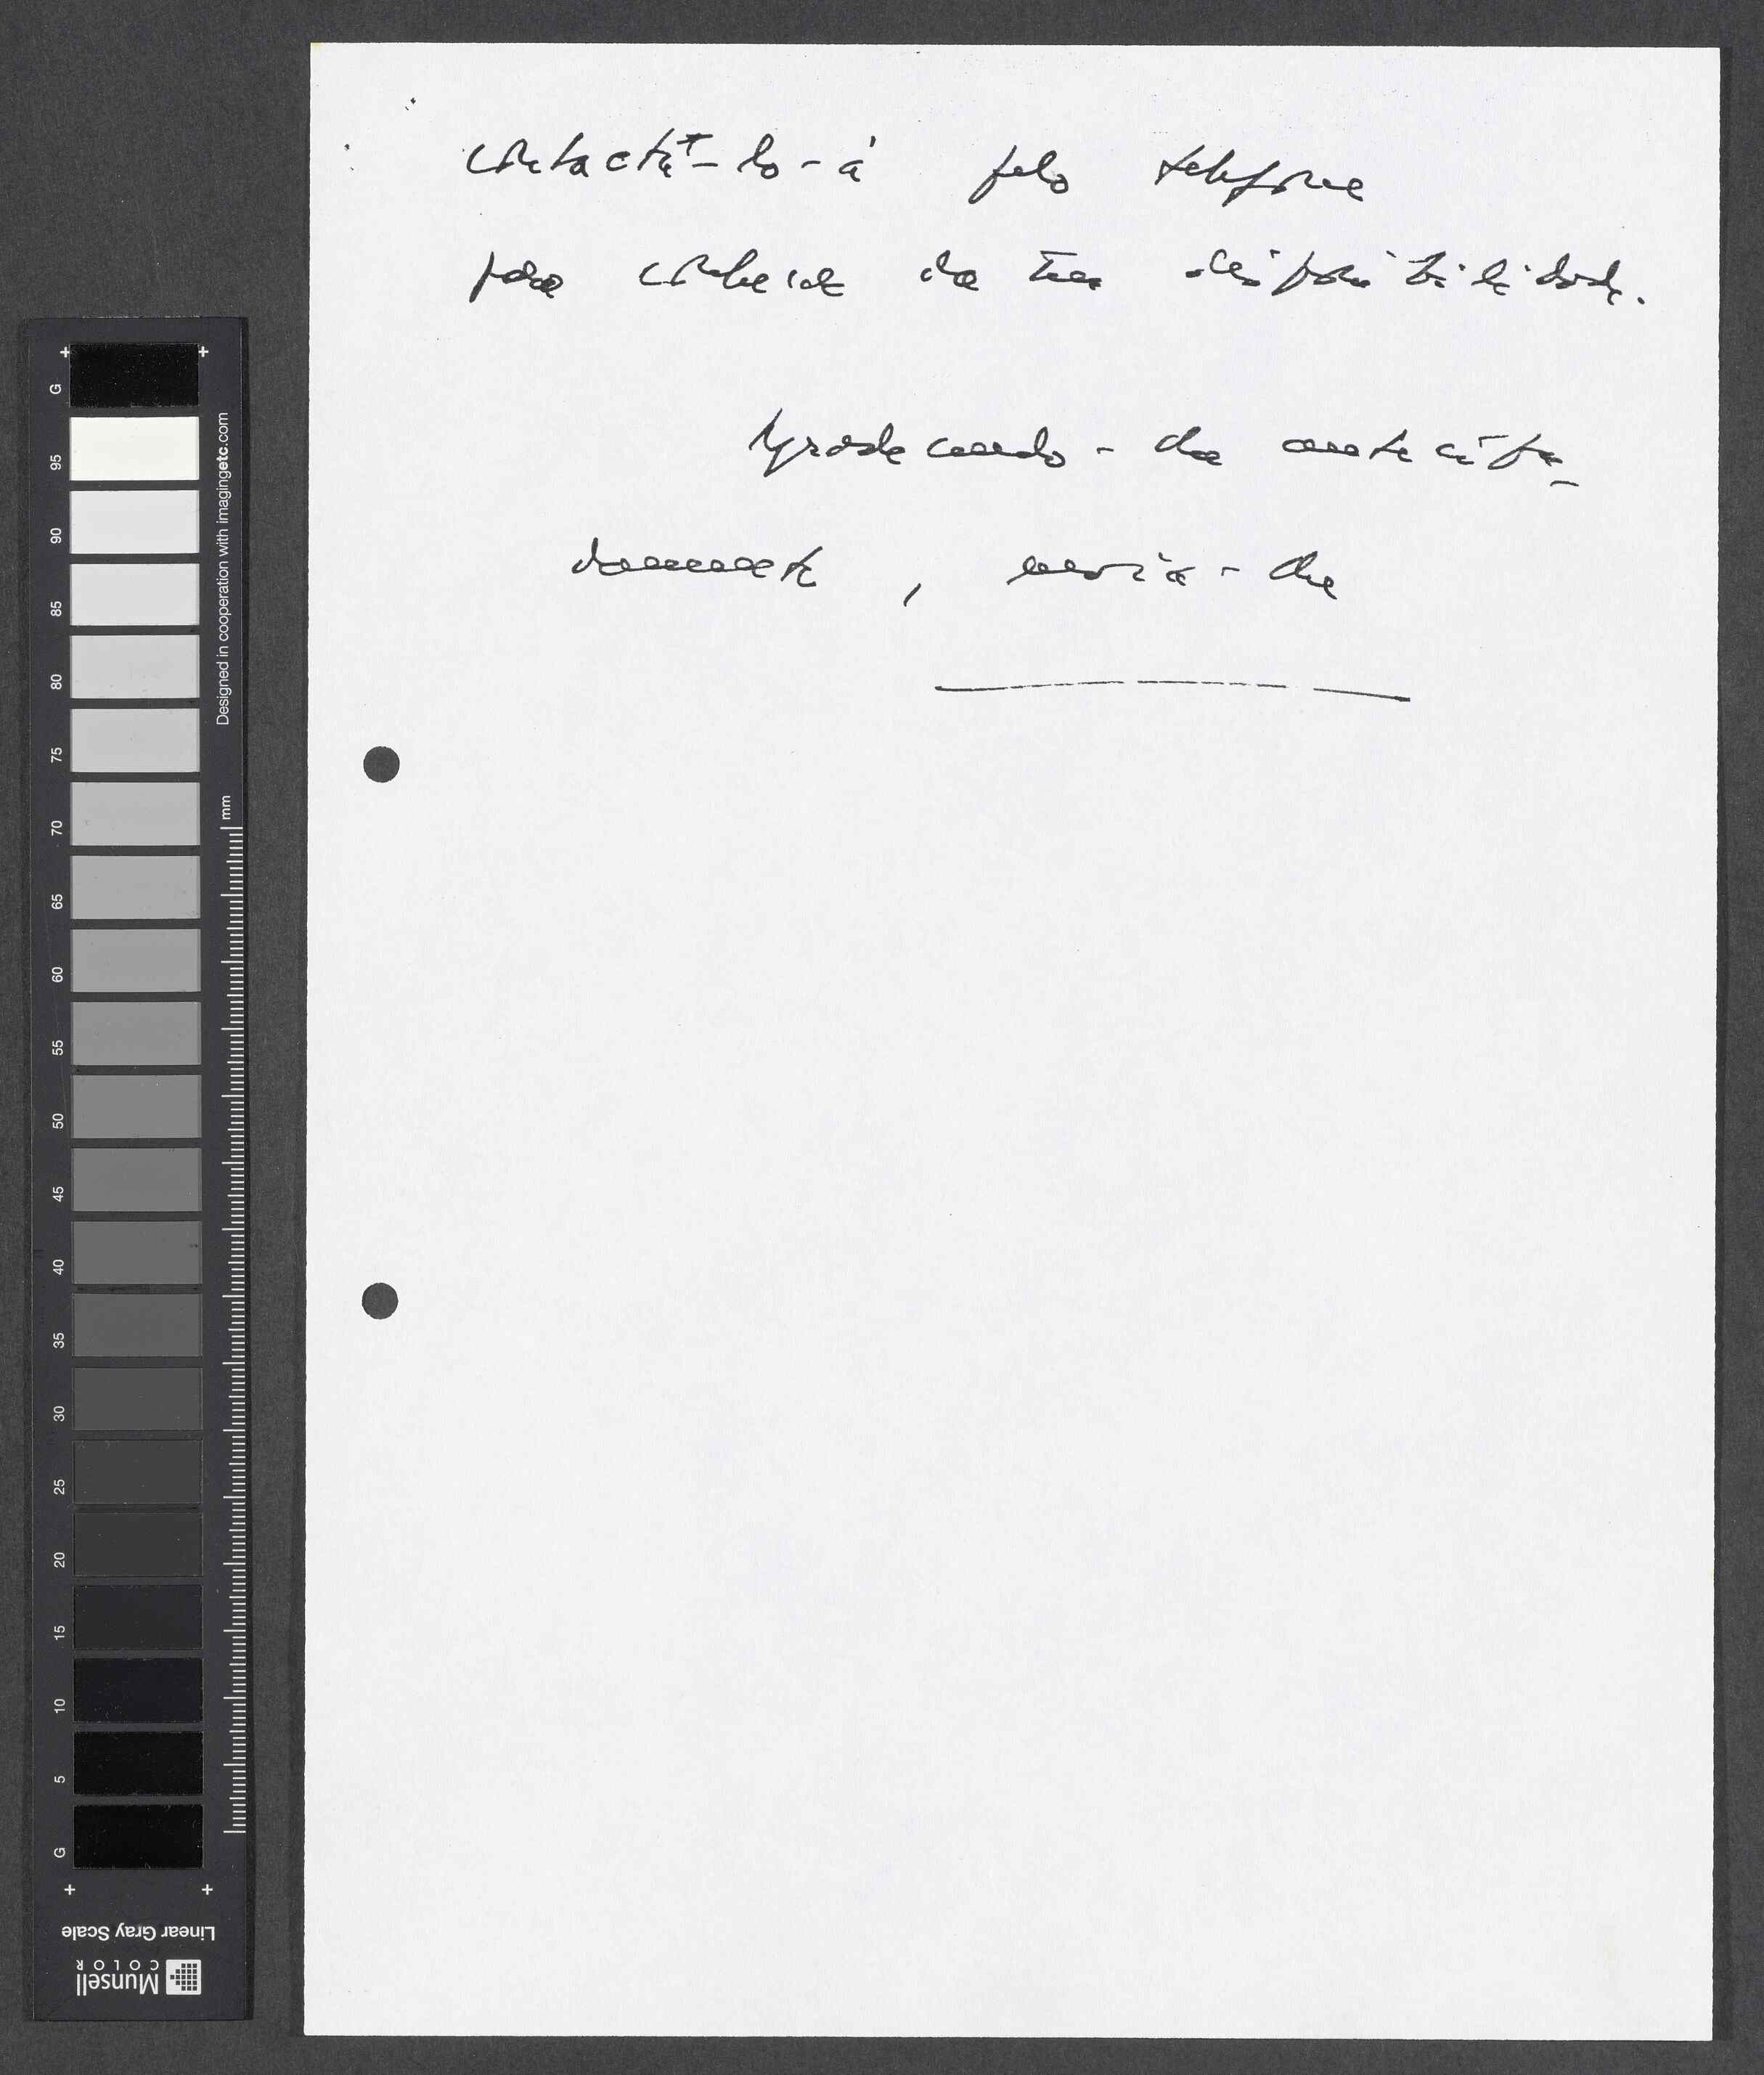 contactá-lo-á pelo telefone
para da sua disponibilidade.
Agradecendo-lhe antecipa-
damente, envia-lhe
G
95
90
85
80
75
70
65
60
55
50
45
40
35
30
25
20
15
10
5
G
Designed in cooperation with imagingetc.com
mm
Linear Gray Scale
Munsell
COLOR